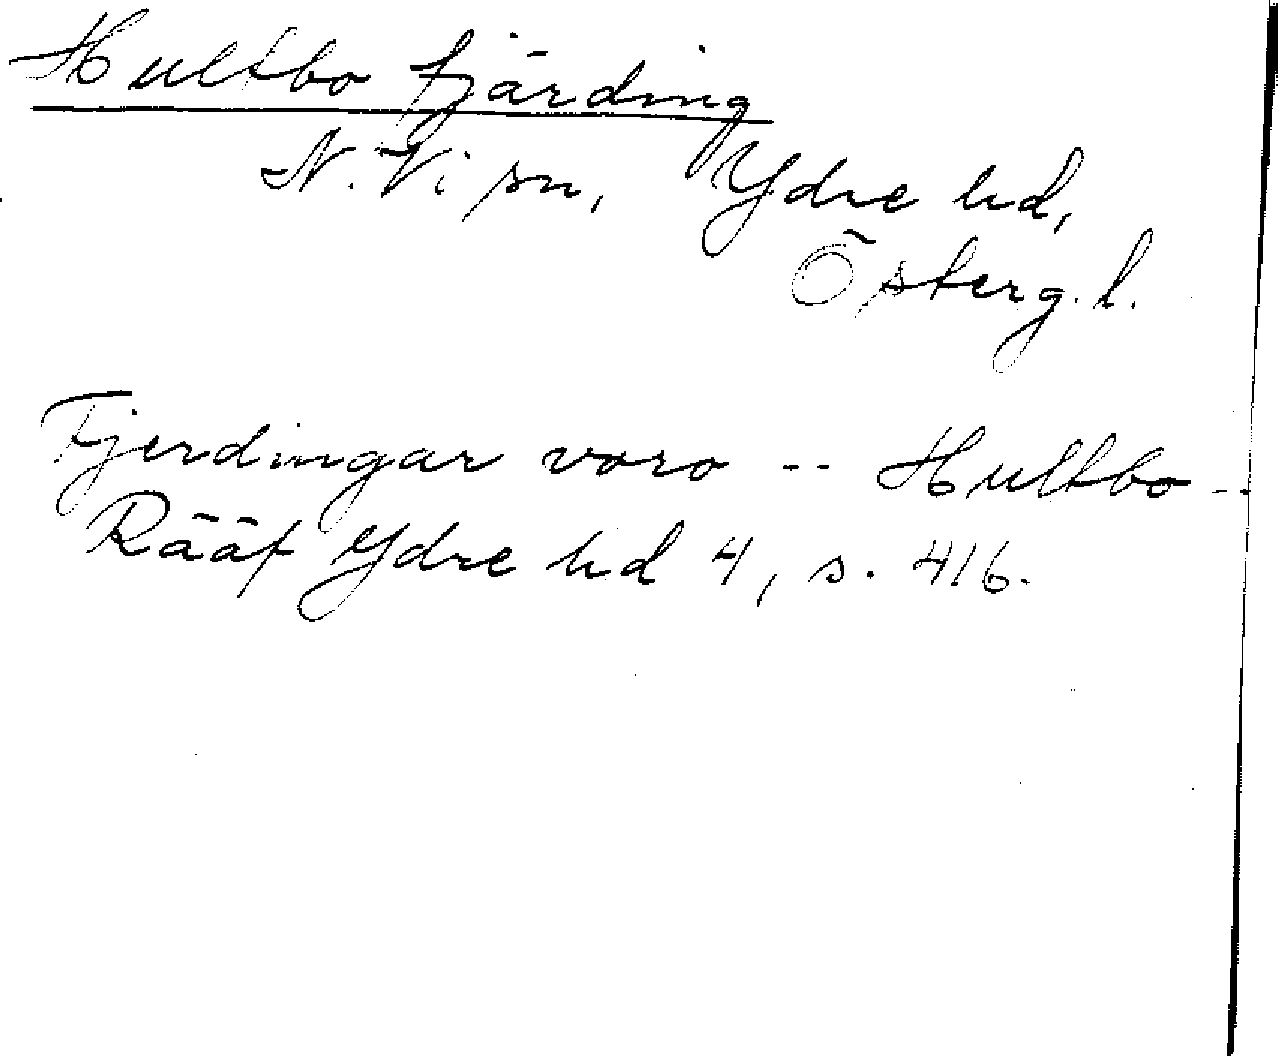 Hultbo fjärding
N. Vi sn, Ydre hd,
Österg. l.
Fjerdingar voro -- Hultbo --
Rääf Ydre hd 4, s. 416.